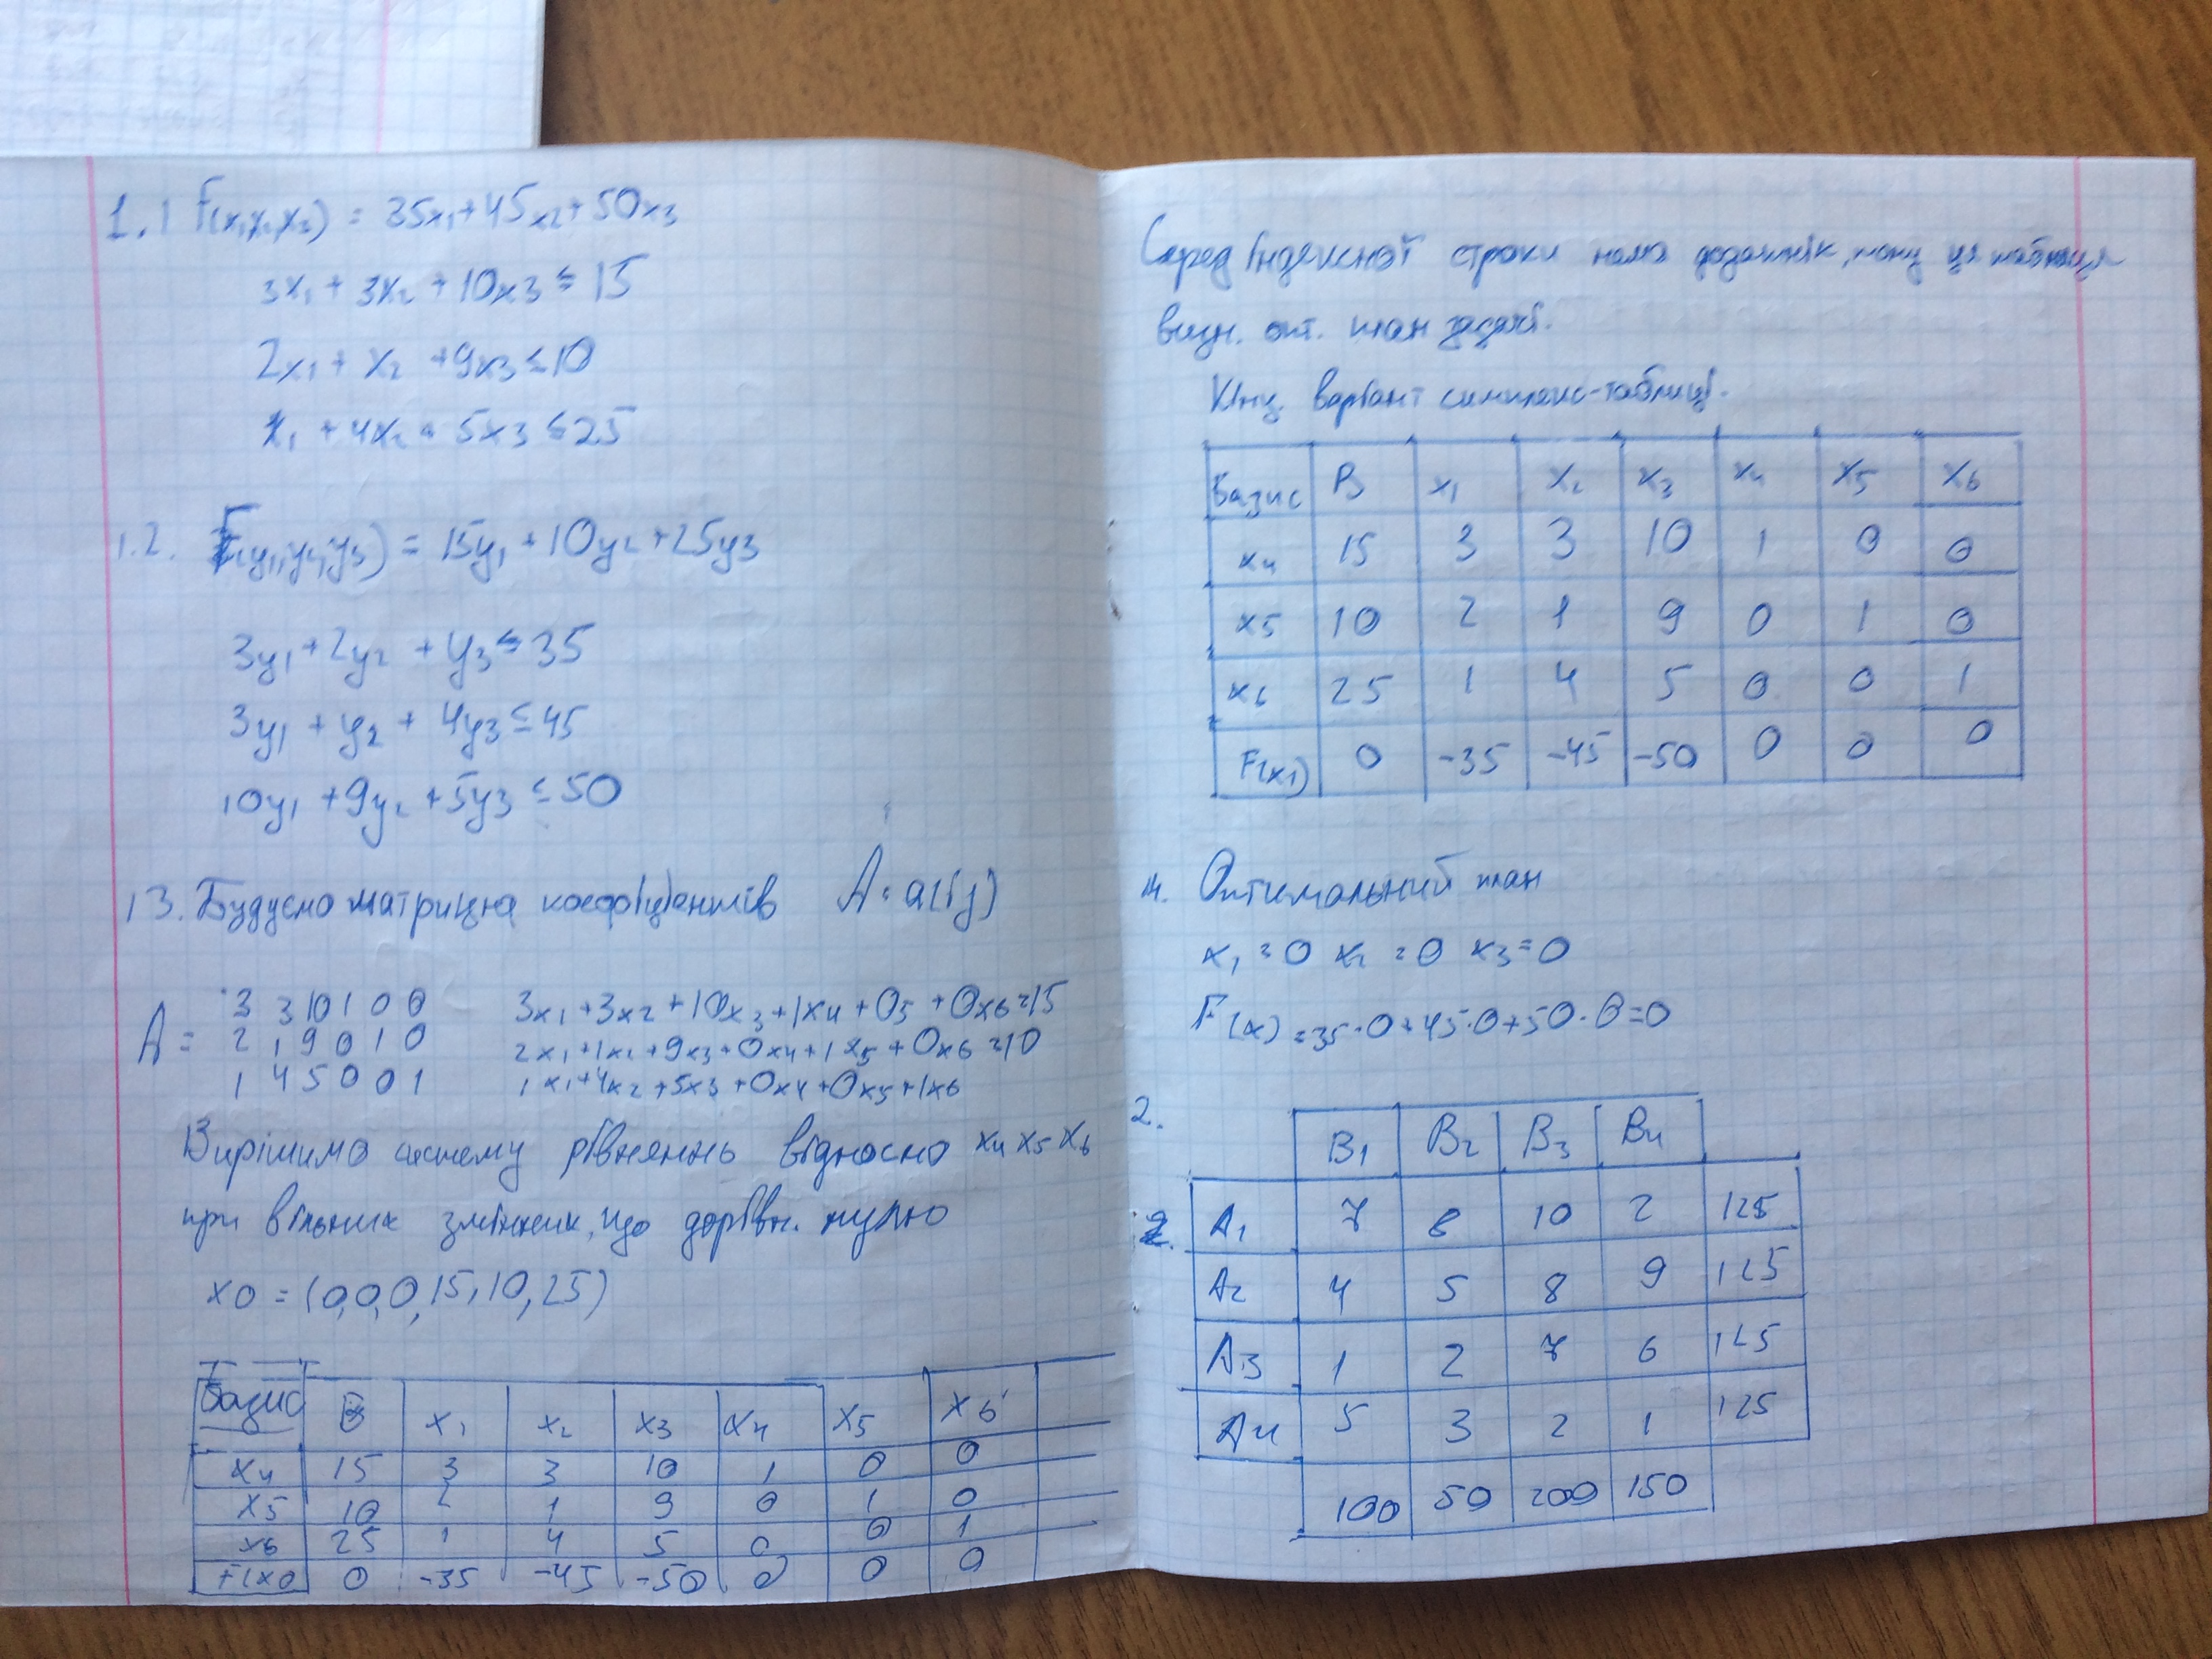 1.1 F(x₁x₂x₃) = 35x₁+45x₂+50x₃
3x₁ + 3x₂ + 10x₃ ≤ 15
2x₁ + x₂ + 9x₃ ≤ 10
x₁ + 4x₂ + 5x₃ ≤ 25
1.2. F(y₁,y₂,y₃) = 15y₁ + 10y₂ + 25y₃
3y₁ + 2y₂ + y₃ ≤ 35
3y₁ + y₂ + 4y₃ ≤ 45
10y₁ + 9y₂ + 5y₃ ≤ 50
13. Будуємо матрицю коефіцієнтів A = a(ij)
A =
3 3 10 1 0 0
2 1 9 0 1 0
1 4 5 0 0 1
3x₁+3x₂+10x₃+1x₄+0₅+0x₆=15
2x₁+1x₂+9x₃+0x₄+1x₅+0x₆=10
1x₁+4x₂+5x₃+0x₄+0x₅+1x₆
Вирішимо систему рівнянь відносно x₄ x₅ x₆
при вільних змінних, що дорівн. нулю
x0 = (0,0,0,15,10,25)
Базис B x₁ x₂ x₃ x₄ x₅ x₆
x₄ 15 3 3 10 1 0 0
x₅ 10 2 1 9 0 1 0
x₆ 25 1 4 5 0 0 1
F(x0 0 -35 -45 -50 0 0 0
Серед Індексної строки нема тому ця таблиця
визн. опт. план задачі.
Кінц. варіант симплекс-таблиці.
Базис B x₁ x₂ x₃ x₄ x₅ x₆
x₄ 15 3 3 10 1 0 0
x₅ 10 2 1 9 0 1 0
x₆ 25 1 4 5 0 0 1
F(x₁) 0 -35 -45 -50 0 0 0
4. Оптимальний план
x₁ = 0 x₂ = 0 x₃ = 0
F(x) = 35·0+45·0+50·0=0
2.
B₁ B₂ B₃ B₄
A₁ 7 8 10 2 125
A₂ 4 5 8 9 125
A₃ 1 2 7 6 125
A₄ 5 3 2 1 125
100 50 200 150